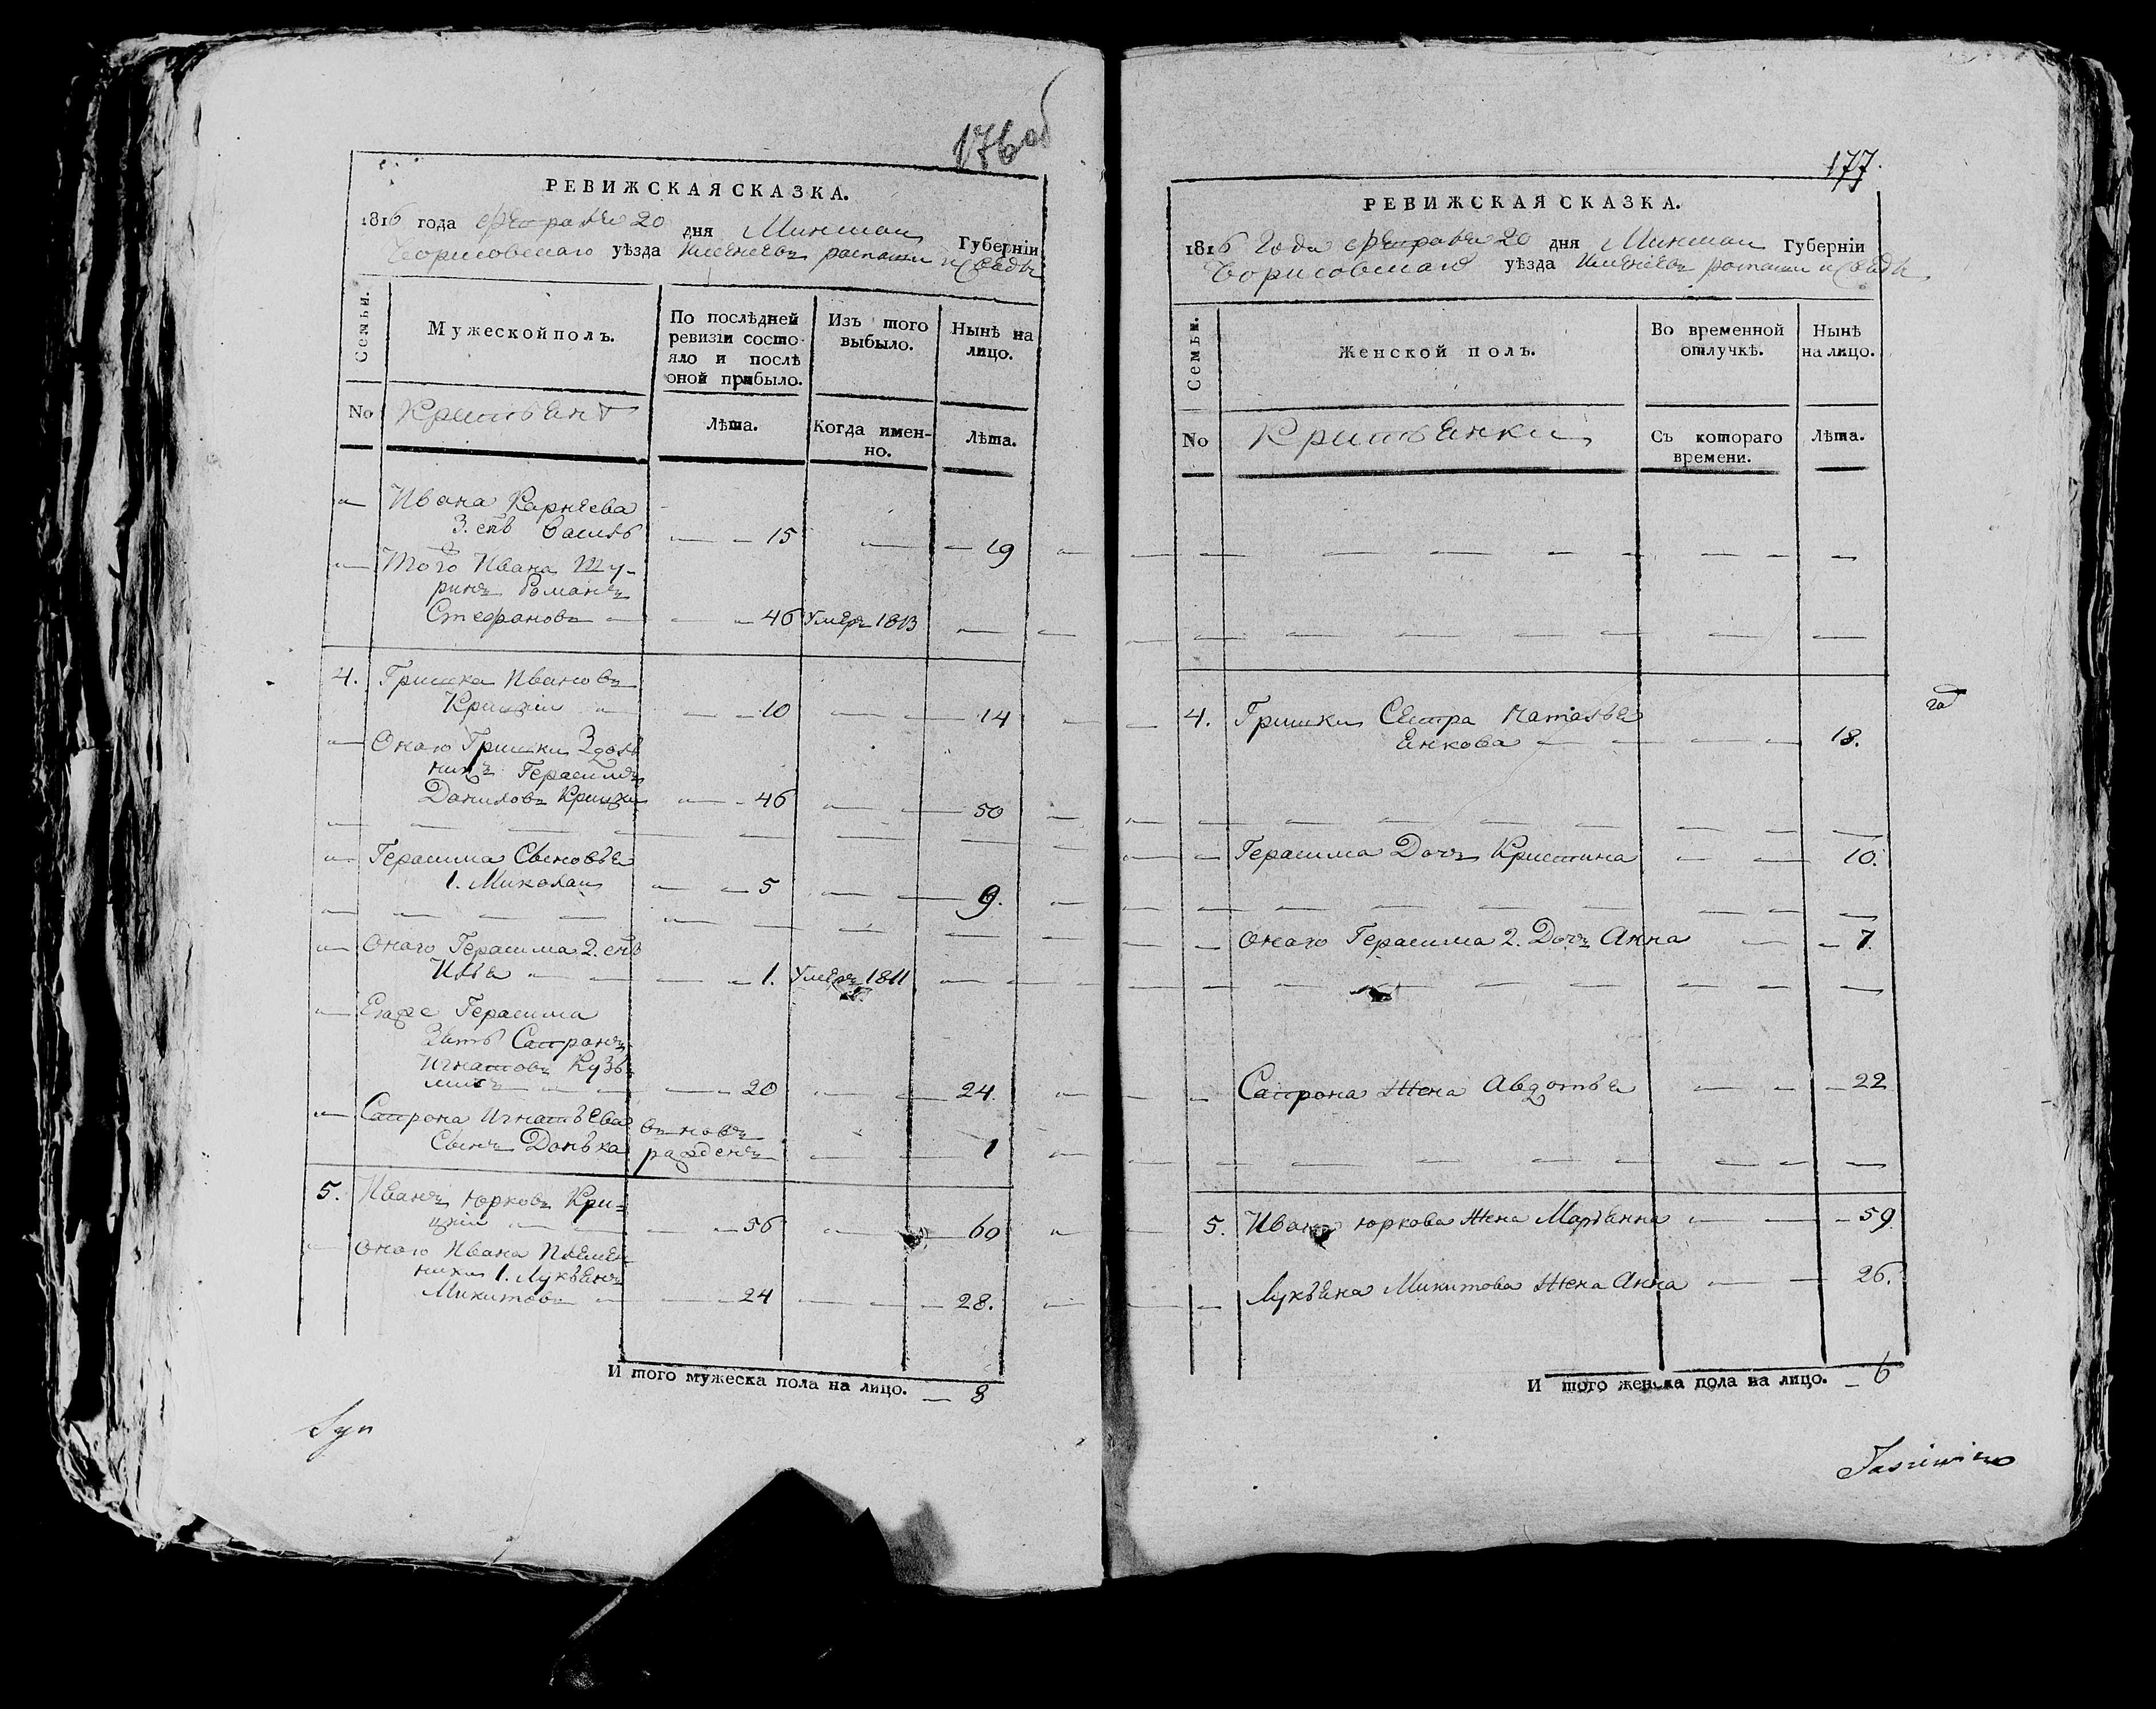 176 об
РЕВИЖСКАЯ СКАЗКА.
1816 года Февраля 20 дня Минской Губерніи
Борисовского уѣзда имениевъ
Семьи.
Мужеской полъ.
По послѣдней
ревизіи состо-
яло и послѣ
оной прибыло.
Изъ того
выбыло.
Нынѣ на
лицо.
No
Лѣта.
Когда имен-
но.
Лѣта.
Ивана Карнеева
3. снъ Василь — 15 — 19
Того Ивана Шу-
ринъ Романъ
Стефановъ — 46 Умеръ 1813 —
4. Гришка Ивановъ
Крицкіи — 10 — 14
Оного Гришки Здоль
никъ Герасимъ
Даниловъ Крицки — 46 — 50
Герасима Сыновья
1. Миколай — 5 — 9.
Оного Герасима 2. снъ
Илья — 1. Умеръ 1811 —
Его же Герасима
Зять Сапронъ
Игнатовъ Кузь
20 — 24.
Сапрона Игнатьева
Сынъ Данька вновь
рожденъ — 1
5. Иванъ Юрковъ Кри-
цкіи — 56 — 60
Оного Ивана Племен
ники 1. Лукъянъ
Микитовъ — 24 — 28.
И того мужеска пола на лицо. — 8
Syn
177.
РЕВИЖСКАЯ СКАЗКА.
1816 Года Февраля 20 дня Минской Губерніи
Борисовского уѣзда имениевъ
Семьи.
Женской полъ.
Во временной
отлучкѣ.
Нынѣ
на лицо.
No
Съ котораго
времени.
Лѣта.
4. Гришки Сестра Наталья
Енкова — 18.
Герасима Дочъ Кристина — 10.
Оного Герасима 2. Дочъ Анна — 7.
Сапрона Жена Авдотья — 22
5. Ивана Юркова Жена Марьянна — 59.
Лукъяна Микитова Жена Анна — 26.
И того женска пола на лицо. — 6